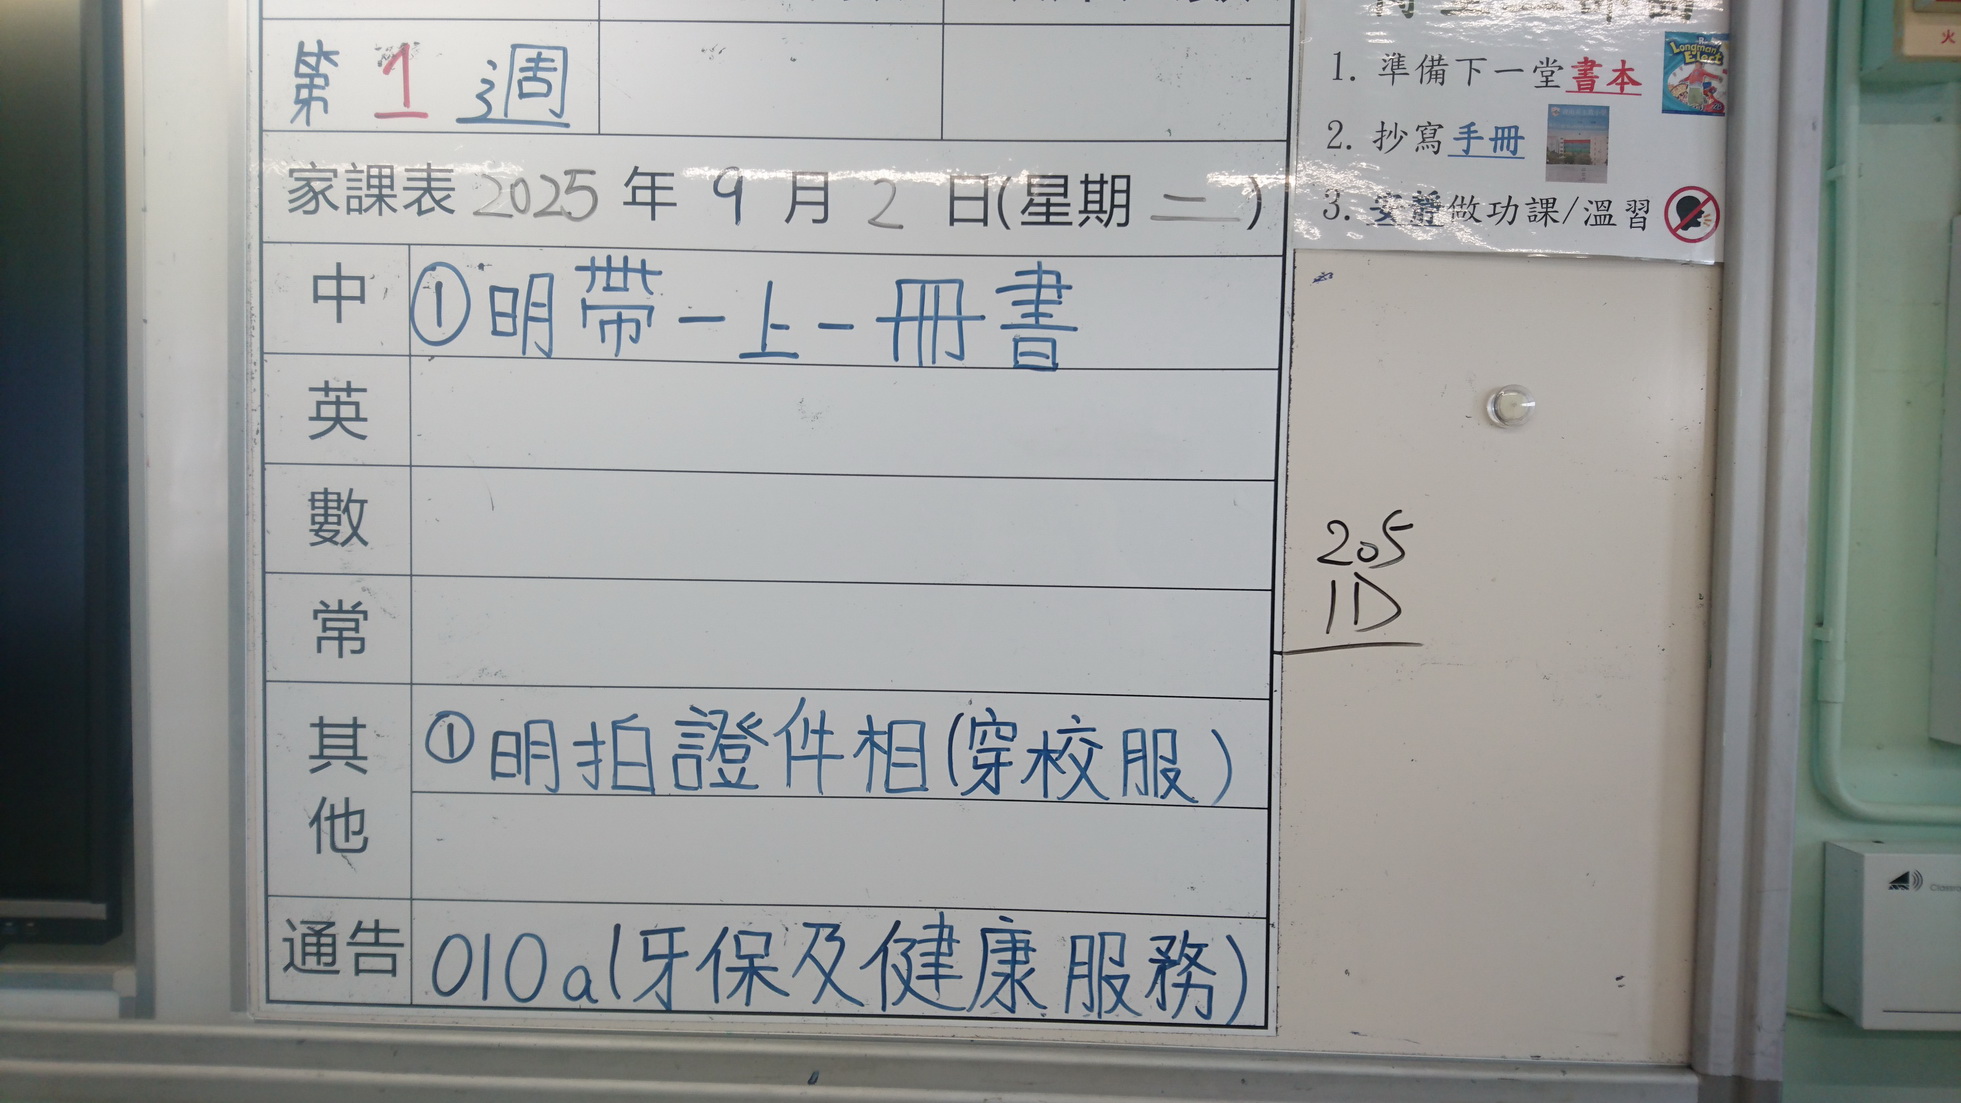 第 1 週
家課表 2025 年 9 月 2 日(星期 二)
中 ①明帶一上一冊書
英
數
常
其他 ①明拍證件相(穿校服)
通告 010a(牙保及健康服務)
1. 準備下一堂書本
Longman
Elect
2. 抄寫手冊
3. 安靜做功課/溫習
205
1D
火